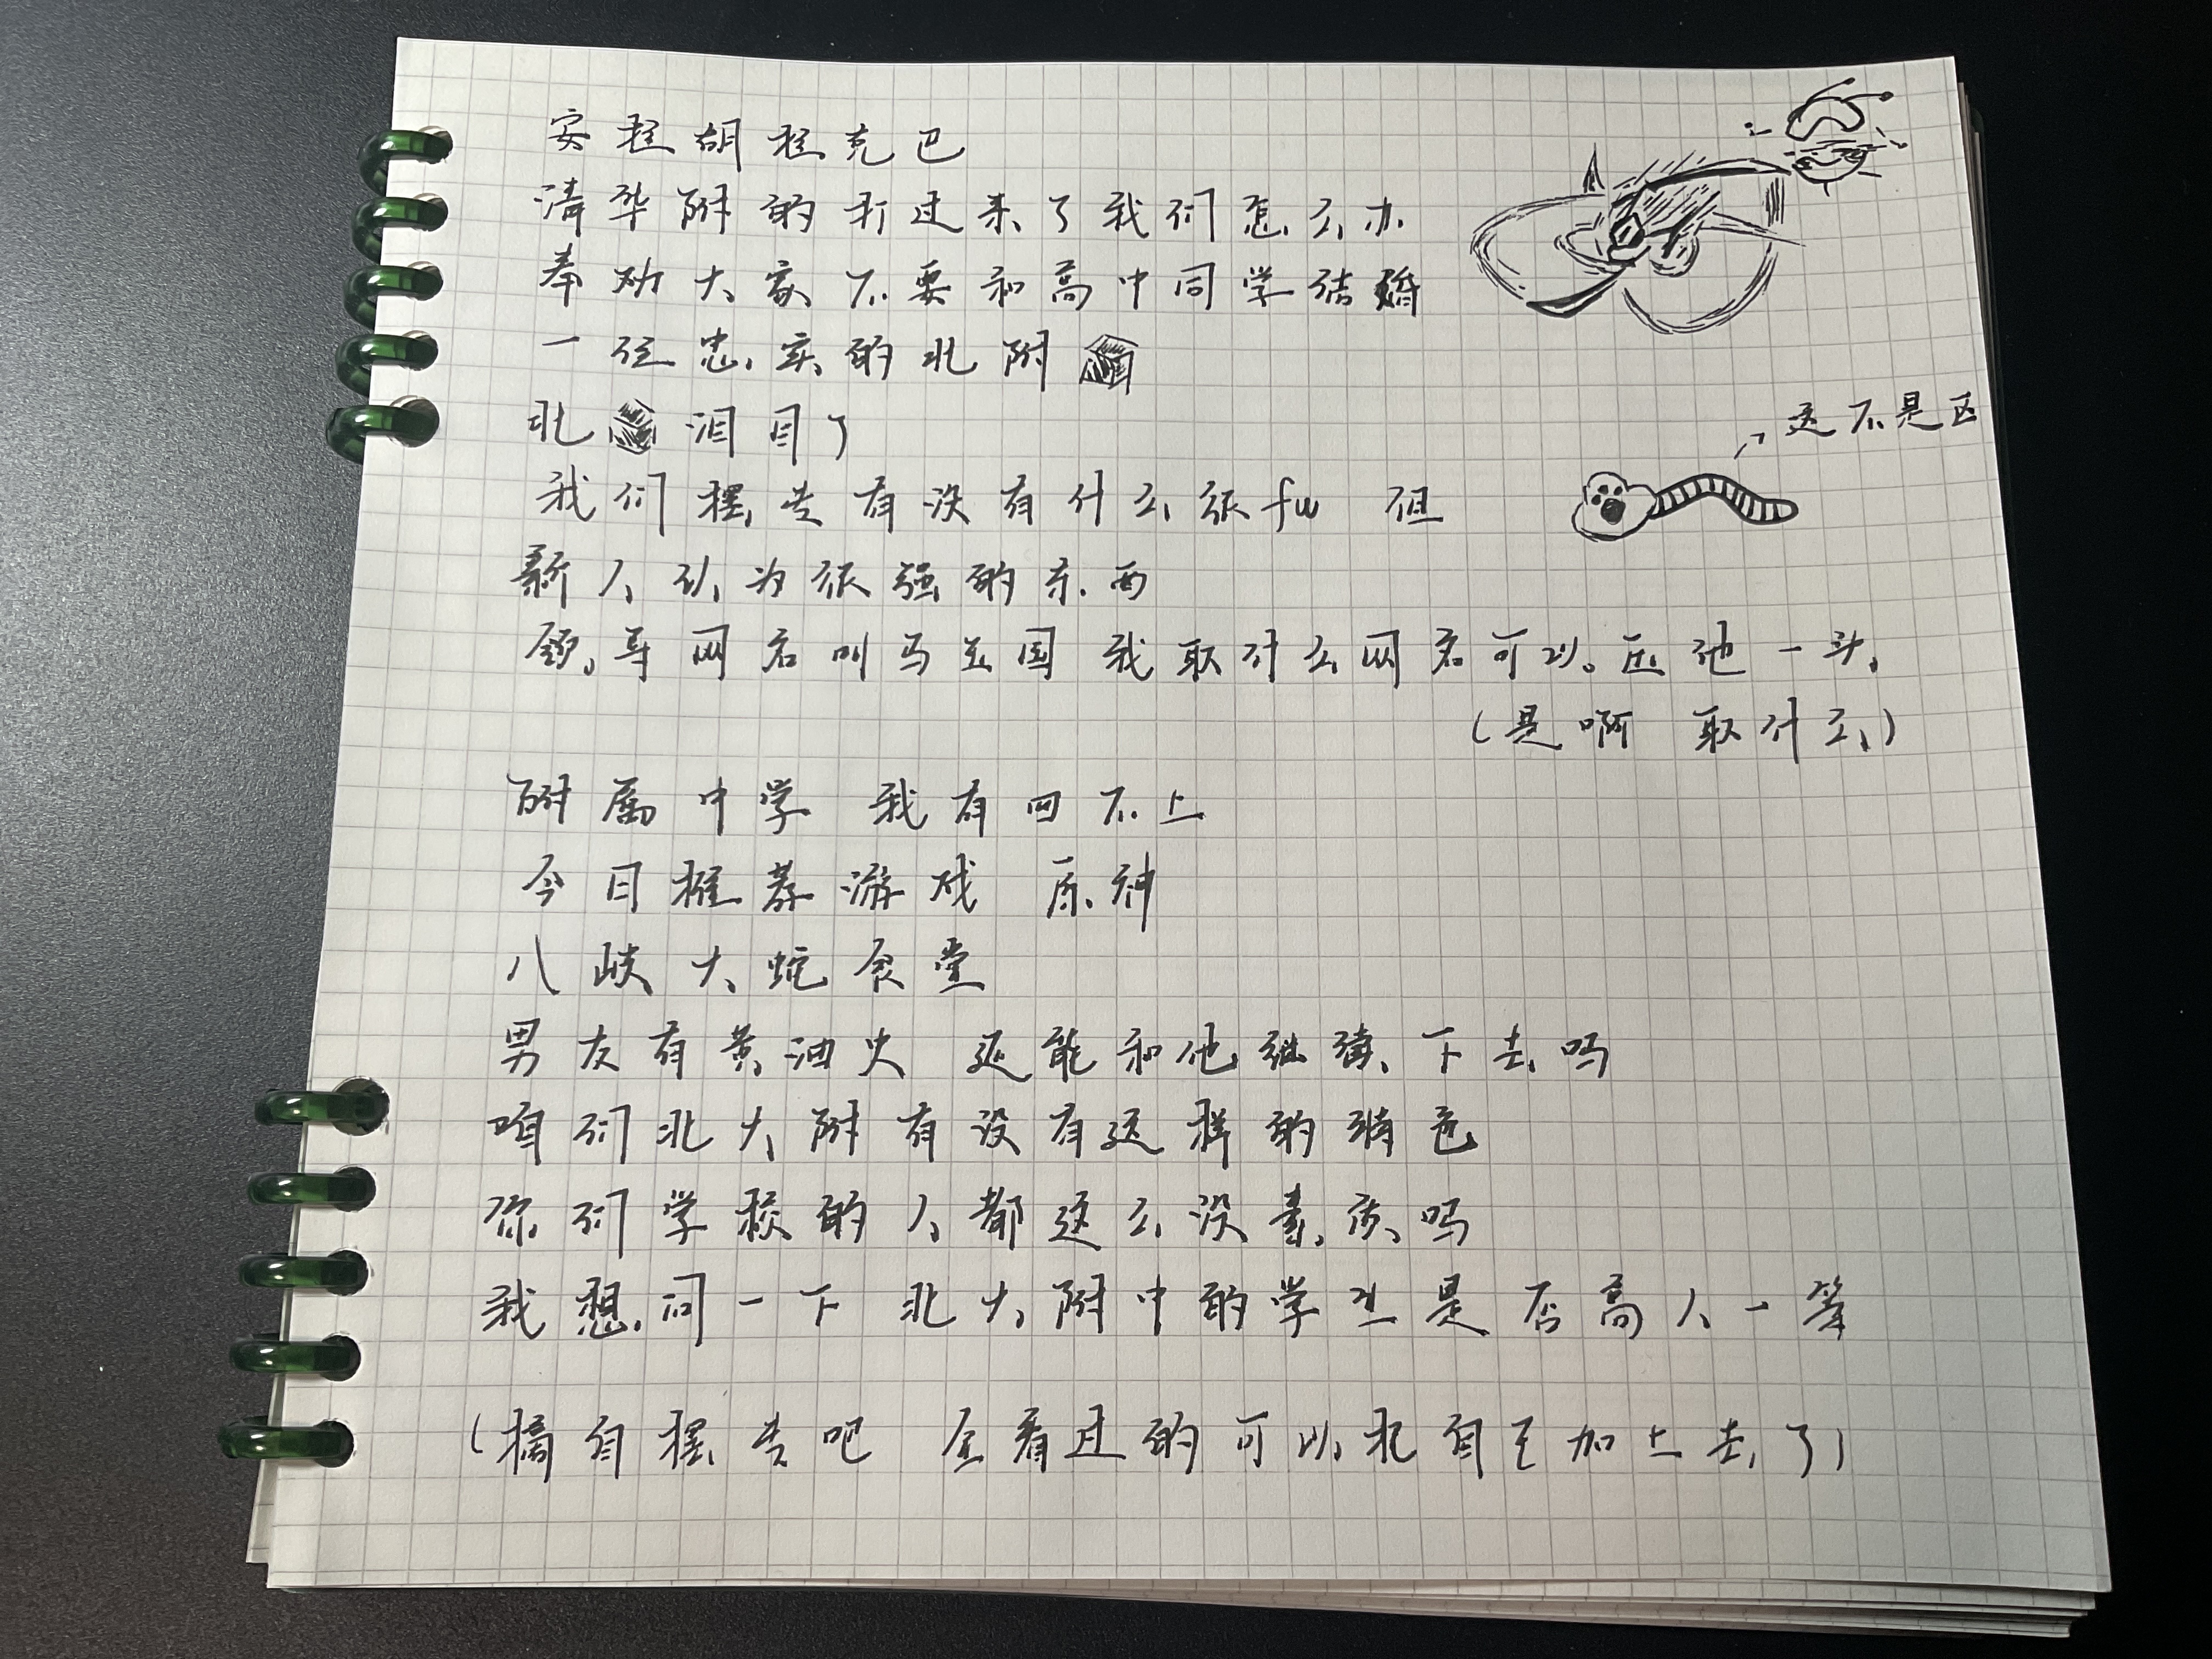 安拉胡拉克巴
清华附的打过来了我们怎么办
奉劝大家不要和高中同学结婚
一位忠实的北附
北 泪目了
这不是区
我们摆芒有没有什么很fw 但
新人认为很强的东西
领导网名叫马立国 我取什么网名可以压他一头
(是啊 取什么)
附属中学 我有四不上
今日推荐游戏 原神
八岐大蛇食堂
男友有黄油史 还能和他继续下去吗
咱们北大附有没有这样的角色
你们学校的人都这么没素质吗
我想问一下 北大附中的学生是否高人一等
(摘自摆芒吧 全看过的可以把自己加上去了)